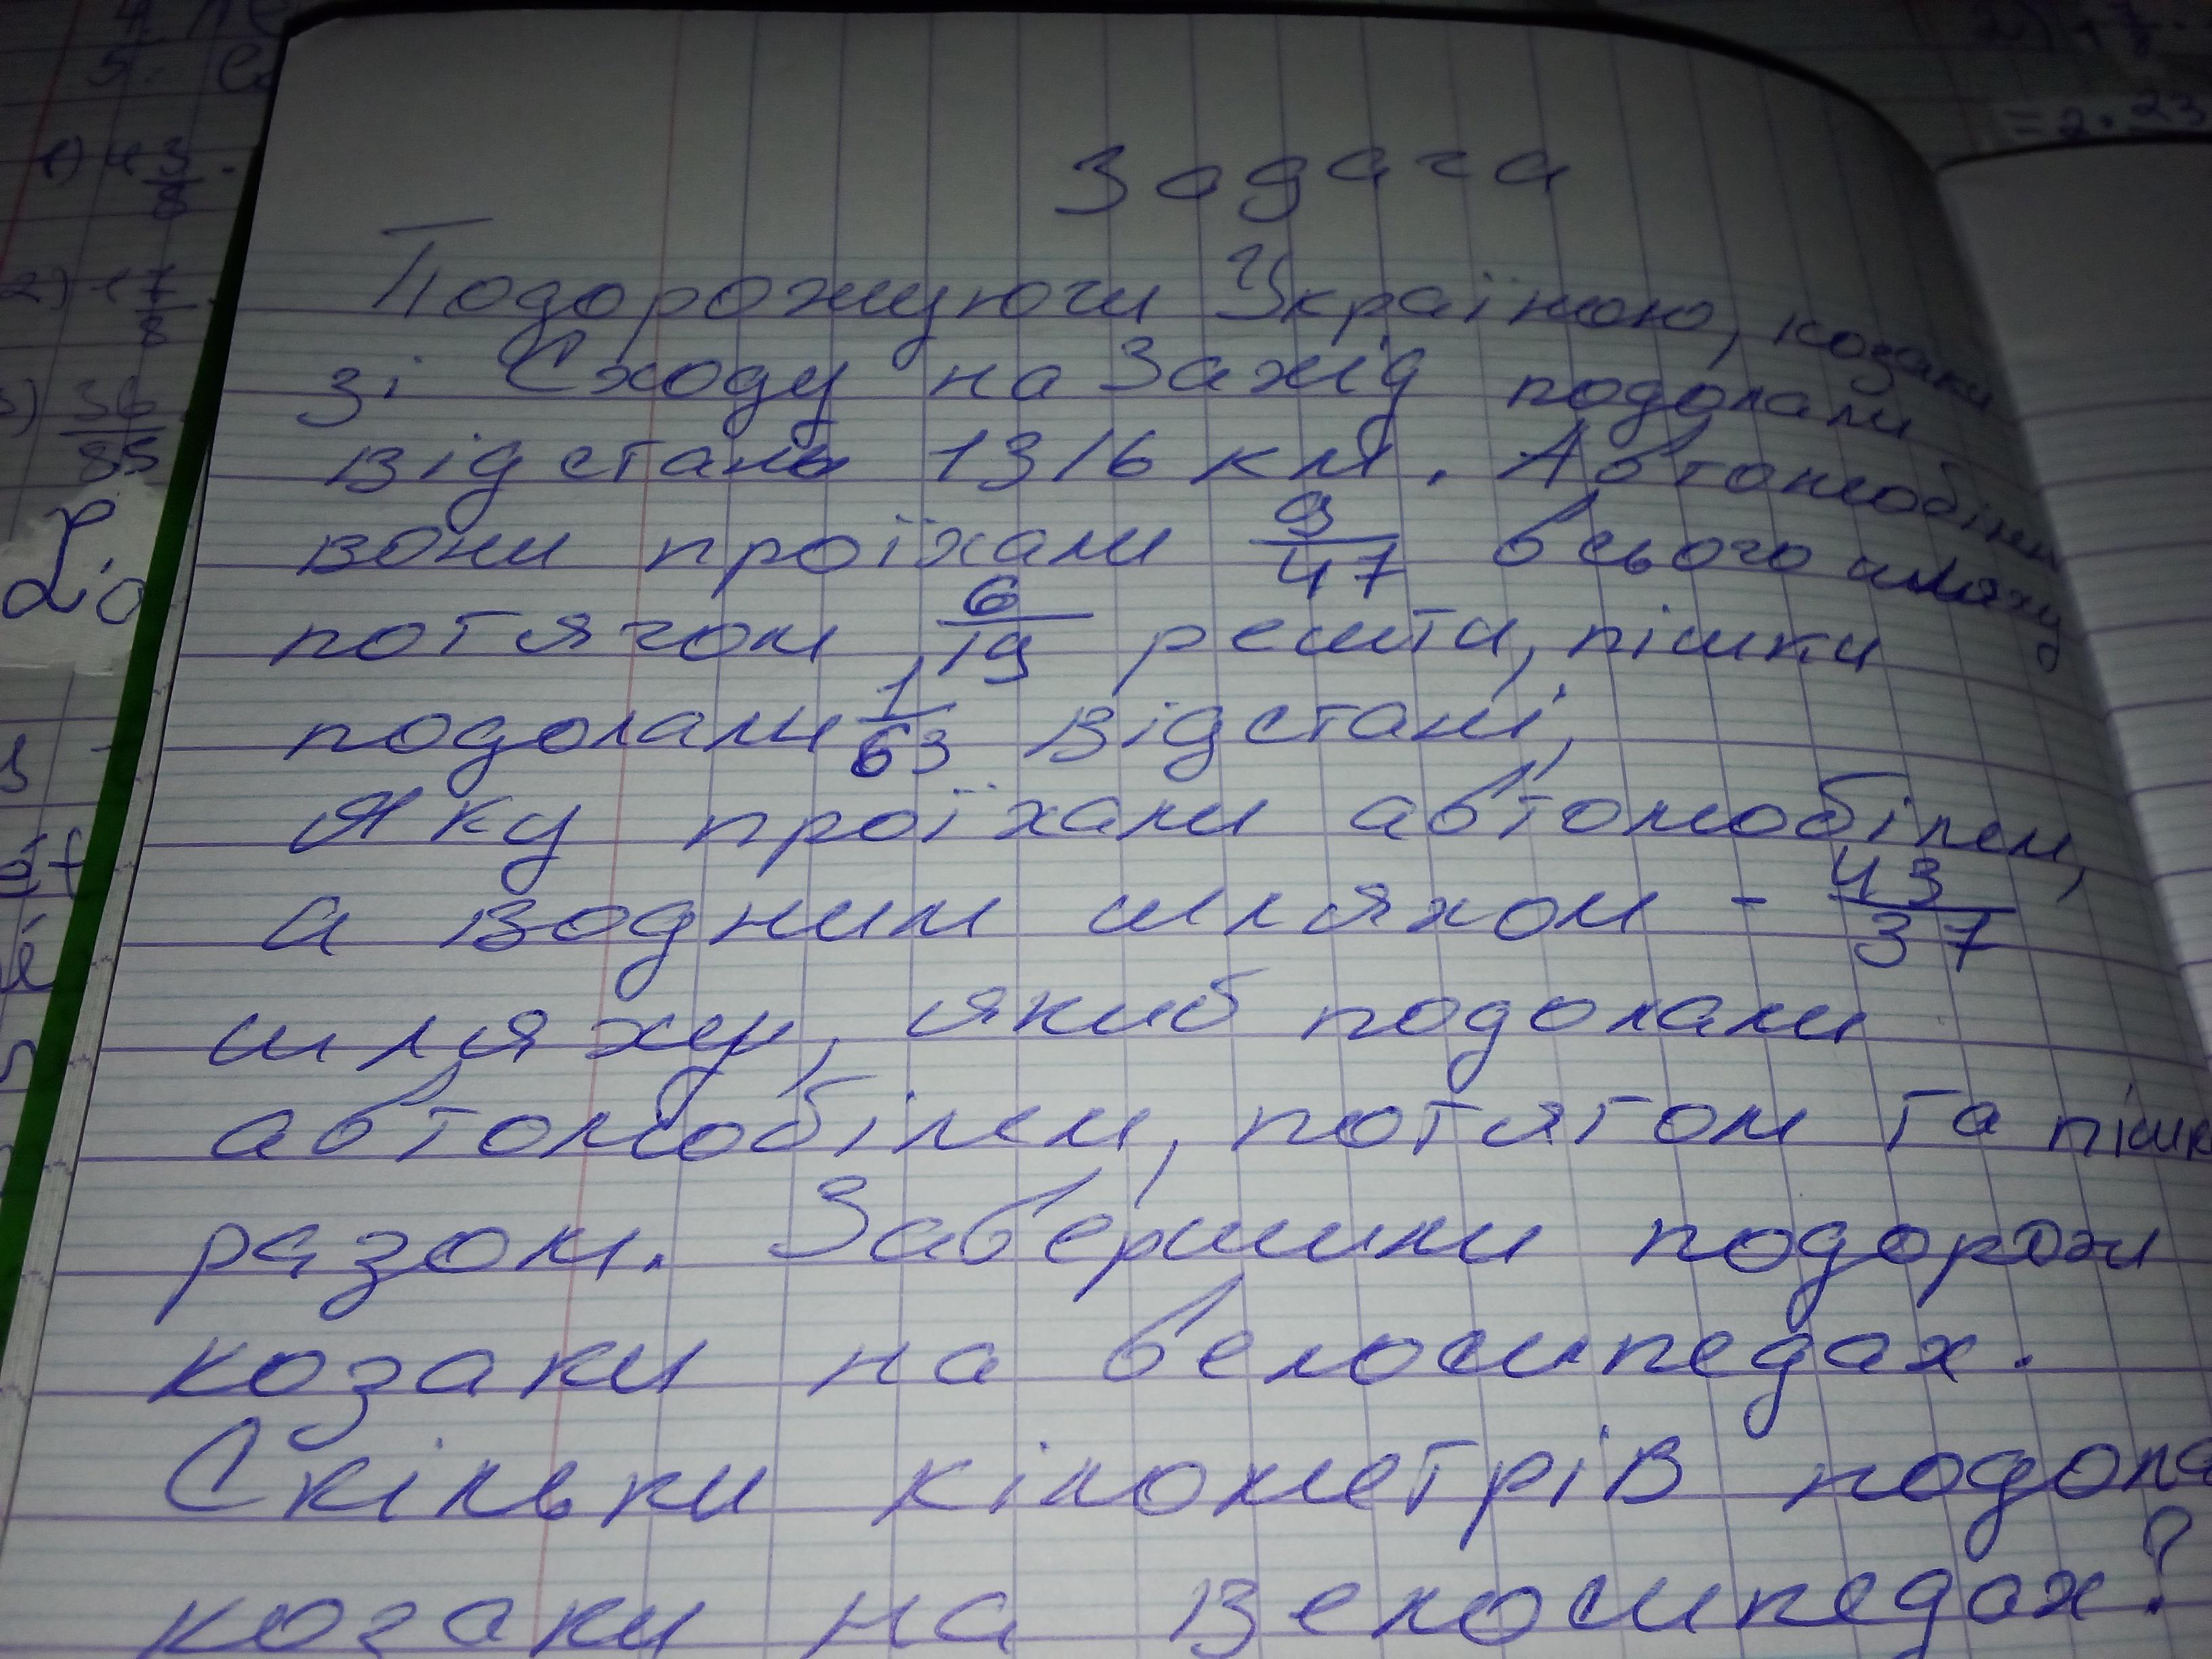 Задача
Подорожуючи Україною, козаки
зі Сходу на Захід подолали
відстань 1316 км. Автомобілем
вони проїхали 9/47 всього шляху
потягом 6/19 решти, пішки
подолали 1/63 відстані,
яку проїхали автомобілем,
а водним шляхом - 43/37
шляху, який подолали
автомобілем, потягом та пішк
разом. Завершили подорож
козаки на велосипедах.
Скільки кілометрів подола
козаки на велосипедах?